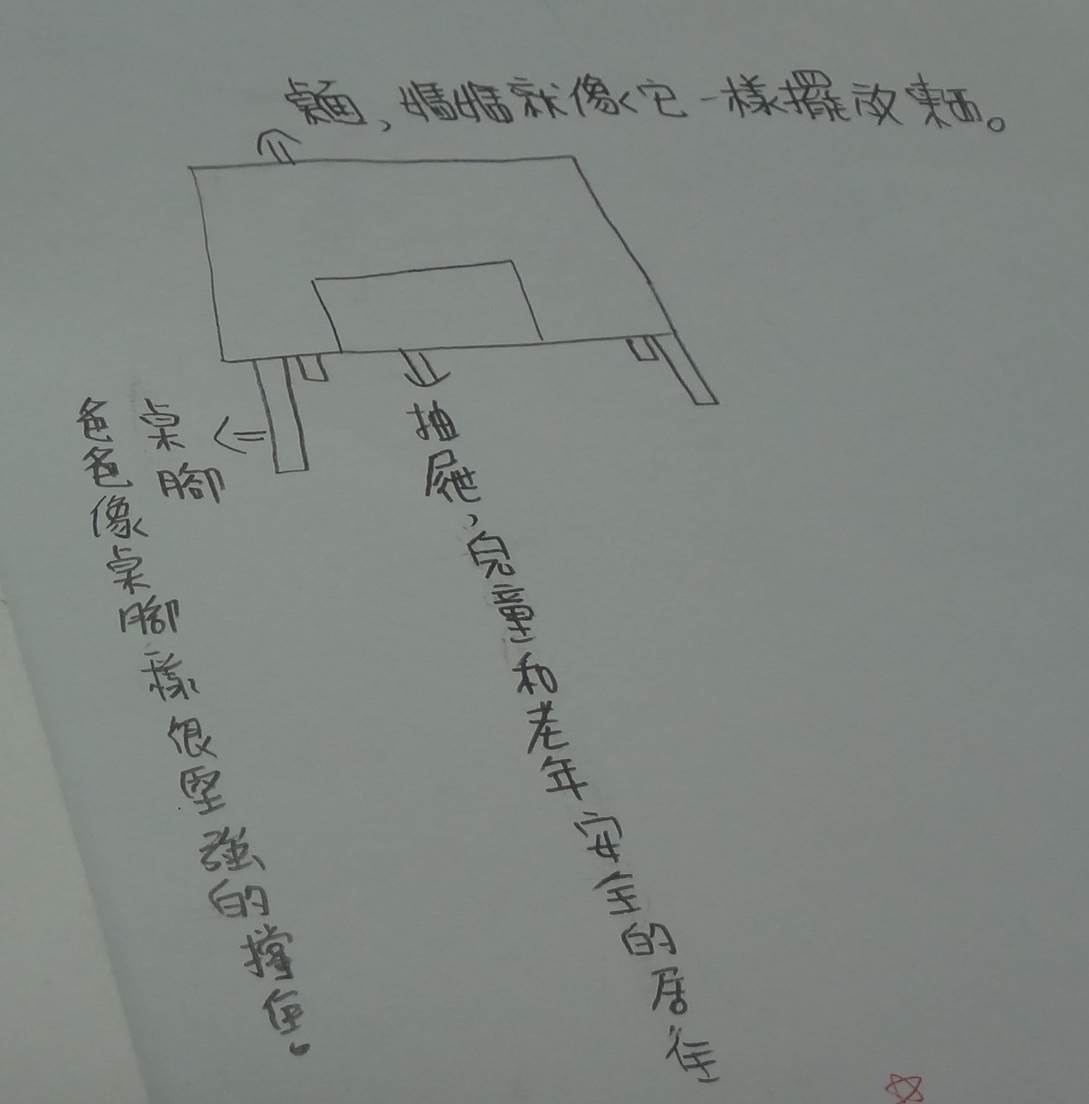 桌面,媽媽就像它一樣擺放東西。
桌腳
爸爸像桌腳一樣很堅強的撐住。
抽屜,兒童和老年安全的居住